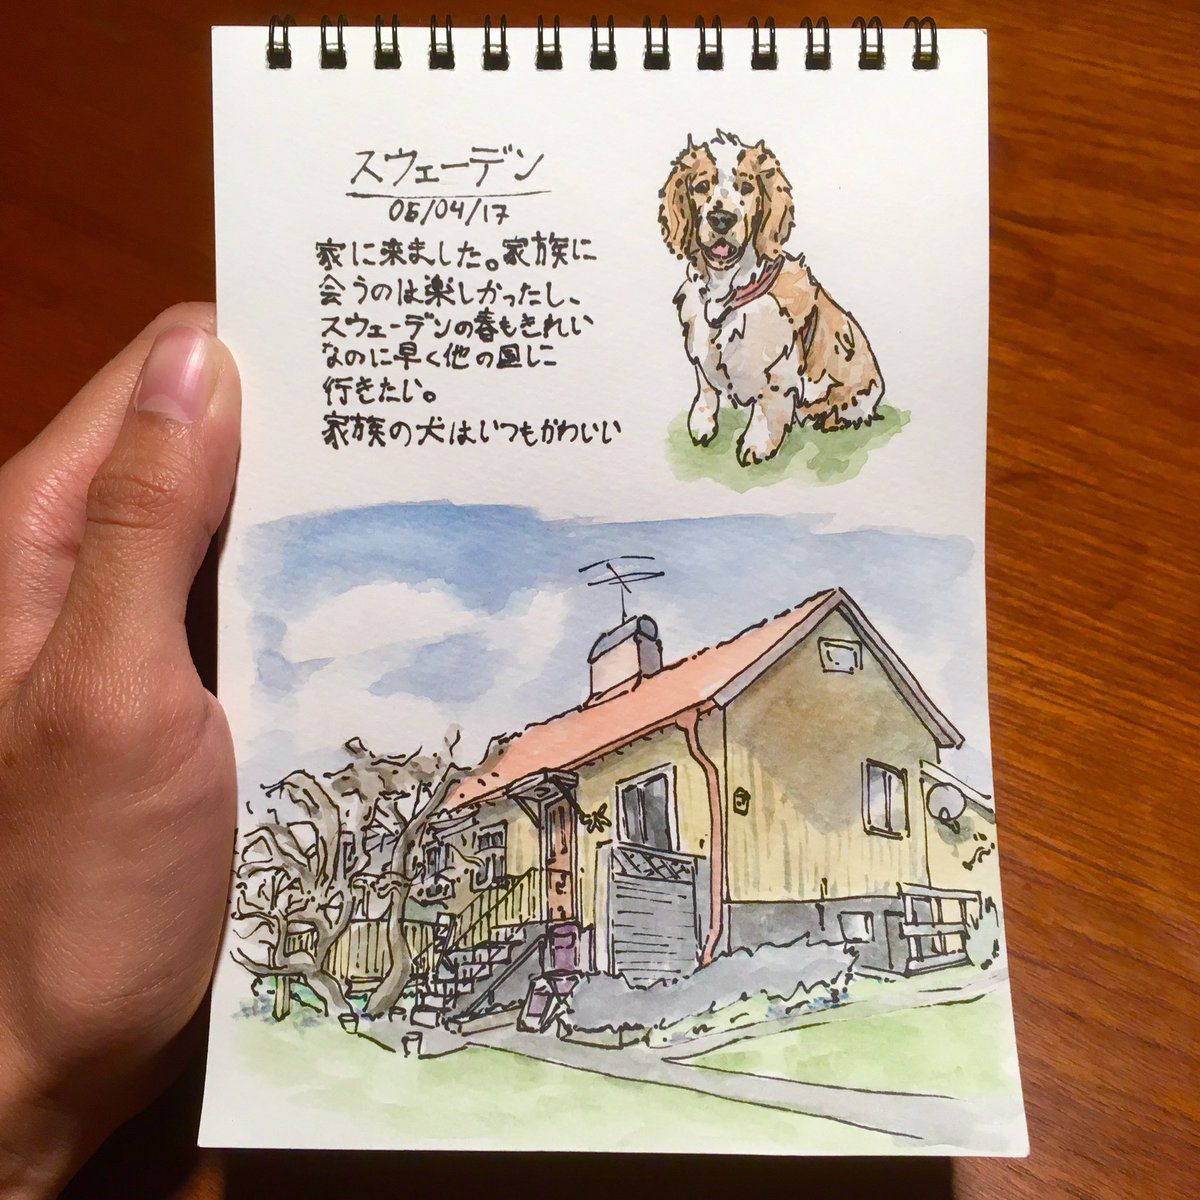 スウェーデン
05/04/17
家に来ました。家族に
会うのは楽しかったし、
スウェーデンの春もきれい
なのに早く他の国に
行きたい。
家族の犬はいつもかわいい